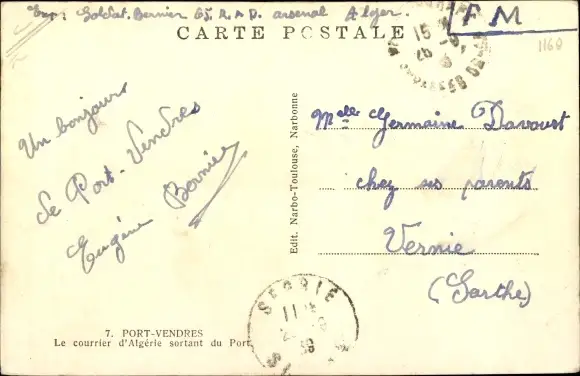 Exp: Soldat Bernier 65 R.A.D. arsenal Alger.
FM
CARTE POSTALE
1160
Un bonjour
de Port-Vendres
Eugène Bernier
Edit. Narbo-Toulouse, Narbonne
Melle Germaine Davoust
chez ses parents
Vernie
(Sarthe)
SEGRIE
11
7. PORT-VENDRES
Le courrier d'Algérie sortant du Port